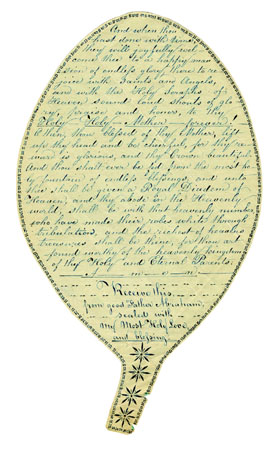 And when thou
hast done with time,
They will joyfully wel-
come thee to a happy man
sion of endless glory there to re-
joice with Saints and Angels,
and with the Holy Seraphs of
Heaven sound loud shouts of glo
ry, praises and honor, to thy
Holy Holy Mother forever!
O then, thou blessed of thy Mother, lift
up thy head and be cheerful, for thy re-
ward is glorious, and thy Crown beautiful.
And thou shalt ever be from the
ly fountain of endless blessings, and unto
thee shall be given a Royal Diadem of
Heaven, and thy abode in the Heavenly
world, shall be with that heavenly number
who have made their robes white through
tribulation, and the richest of heavens
treasures shall be thine, for thou art
found worthy of the Heavenly kingdom
of thy Holy and Eternal Parents.
Receive this
from good Father Abraham,
sealed with
my Most Holy Love
and blessing.